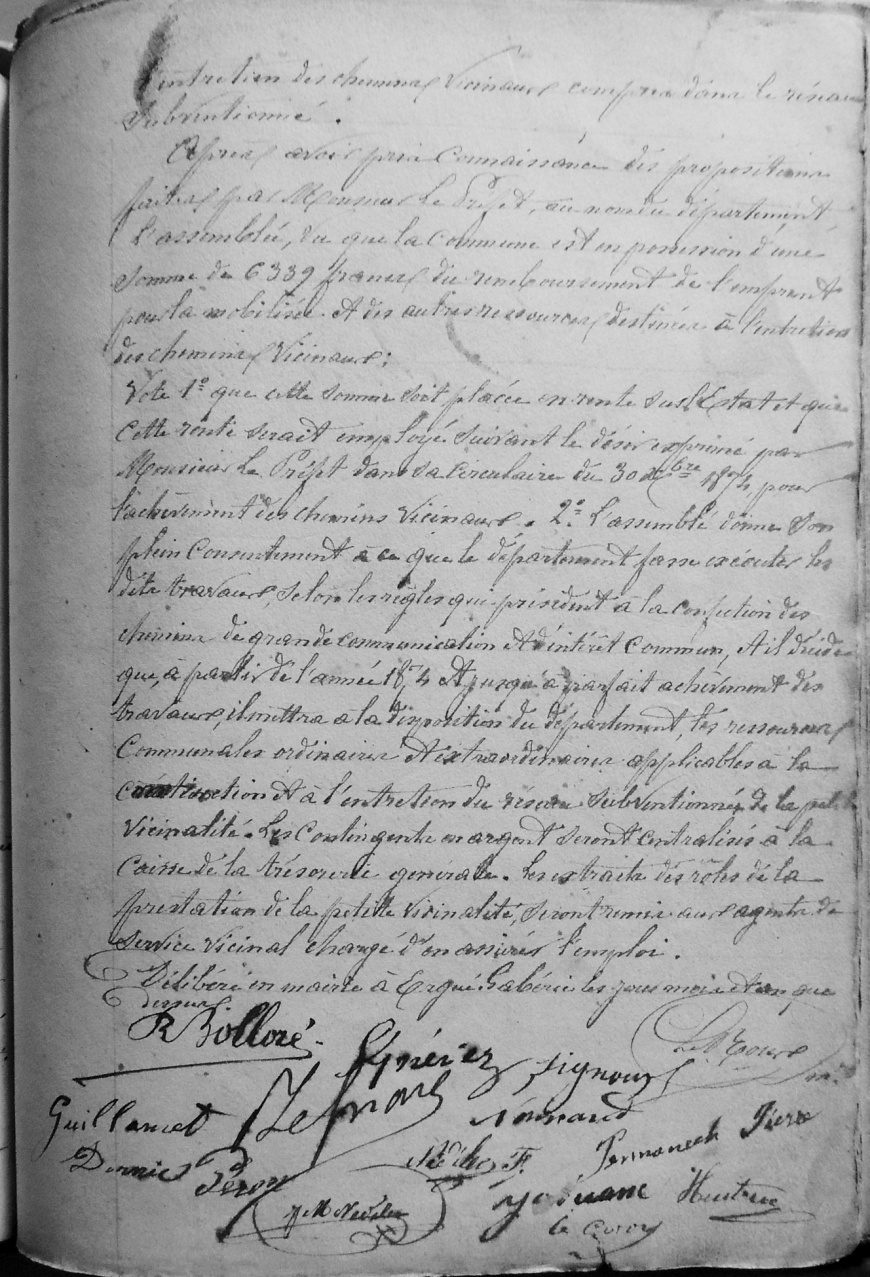 l'entretien des chemins vicinaux compris dans le réseau
subventionné.
Après avoir pris connaissance des propositions
faites par Monsieur Le Préfet, au nom du département
L'assemblée, vu que la commune est en possession d'une
somme de 6339 francs du remboursement de l'emprunt
pour la mobilisée et des autres ressources destinées à l'entretien
des chemins vicinaux;
Vote 1º que cette somme soit placée en rente sur l'Estat et que
cette rente serait employé suivant le désir exprimé par
Monsieur Le Préfet dans sa circulaire du 30 Xbre 1874, pour
l'achèvement des chemins vicinaux. 2º L'assemblé donne son
plein consentement à ce que le département fasse exécuter les
dits travaux, selon les règles qui président à la confection des
chemins de grande communication et d'intérêt commun, et il décide
que, à partir de l'année 1874 et jusqu'à parfait achèvement des
travaux, il mettra à la disposition du département, les ressources
communales ordinaires et extraordinaires applicables à la
construction et à l'entretien du réseau subventionné de la petite
vicinalité. Les contingents en argent seront centralisés à la
caisse de la trésorerie générale. Les extraits des rôles de la
prestation de la petite vicinalité, seront remis aux agents du
service vicinal chargé d'en assurer l'emploi.
Délibéré en mairie à Ergué Gabéric les jour mois et an que
dessus
R Bolloré
Signour
Guillamet
Lennard
Pierre
Peron
le Corre